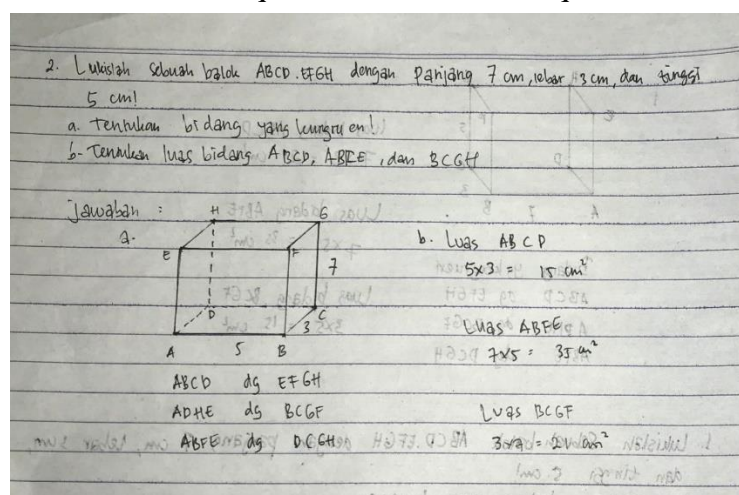 2. Lukislah sebuah balok ABCD.EFGH dengan panjang 7 cm, lebar 3 cm, dan tinggi
5 cm!
a. Tentukan bidang yang kungruen!
b. Tentukan luas bidang ABCD, ABFE, dan BCGH
Jawaban :
a.
H G
E F
7
D C
3
A 5 B
ABCD dg EFGH
ADHE dg BCGF
ABFE dg DCGH
b. Luas ABCD
5x3 = 15 cm²
Luas ABFE
7x5 = 35 cm²
Luas BCGF
3x7 = 21 cm²